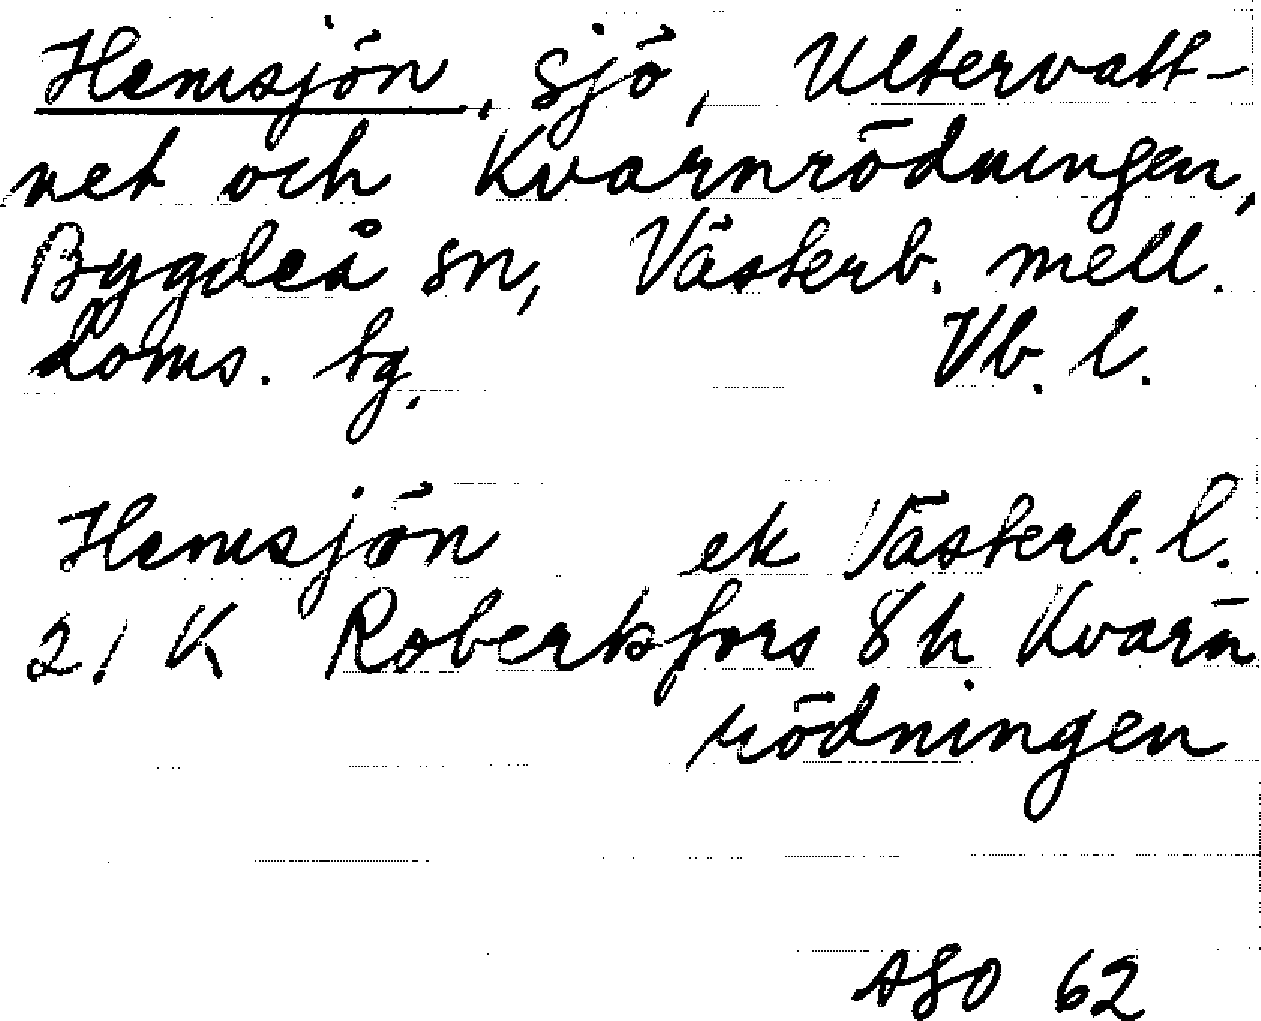 Hemsjön, sjö, Ultervatt-
net och Kvarnrödningen,
Bygdeå sn, Västerb. mell.
doms. tg. Vb. l.
Hemsjön ek Västerb. l.
21 K Robertsfors 8 h Kvarn
rödningen
ASO 62